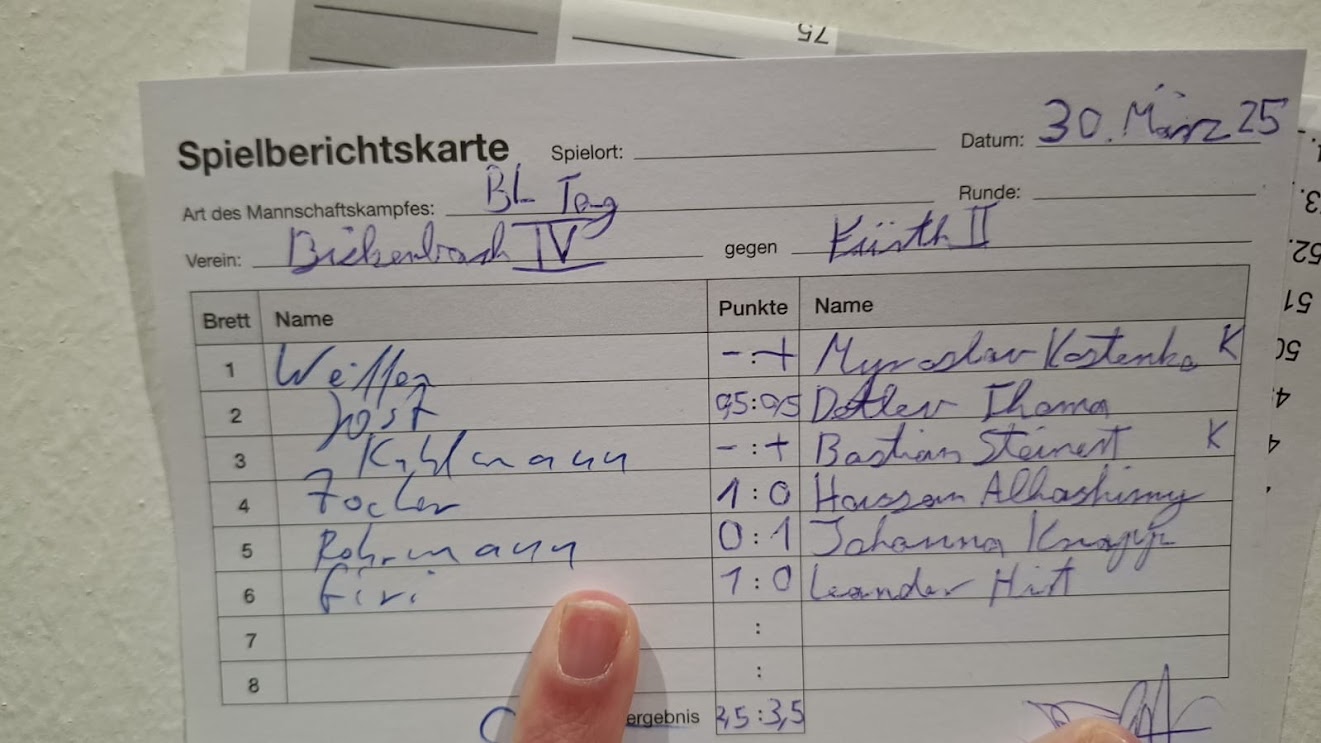 75
Spielberichtskarte Spielort: Datum: 30. März 25
Art des Mannschaftskampfes: BL Runde:
Verein: Bickenbach IV gegen Fürth II
Brett Name Punkte Name
1 - : + Myroslav Kostenko K
2 Jost 0,5:0,5 Detlev Thoma
3 - : + Bastian Steinert K
4 1 : 0 Hassan Alhashimy
5 Rohrmann 0 : 1 Johanna Knapp
6 Giri 1 : 0 Leander Hirt
7 :
8 :
ergebnis 2,5:3,5
52.
51
50